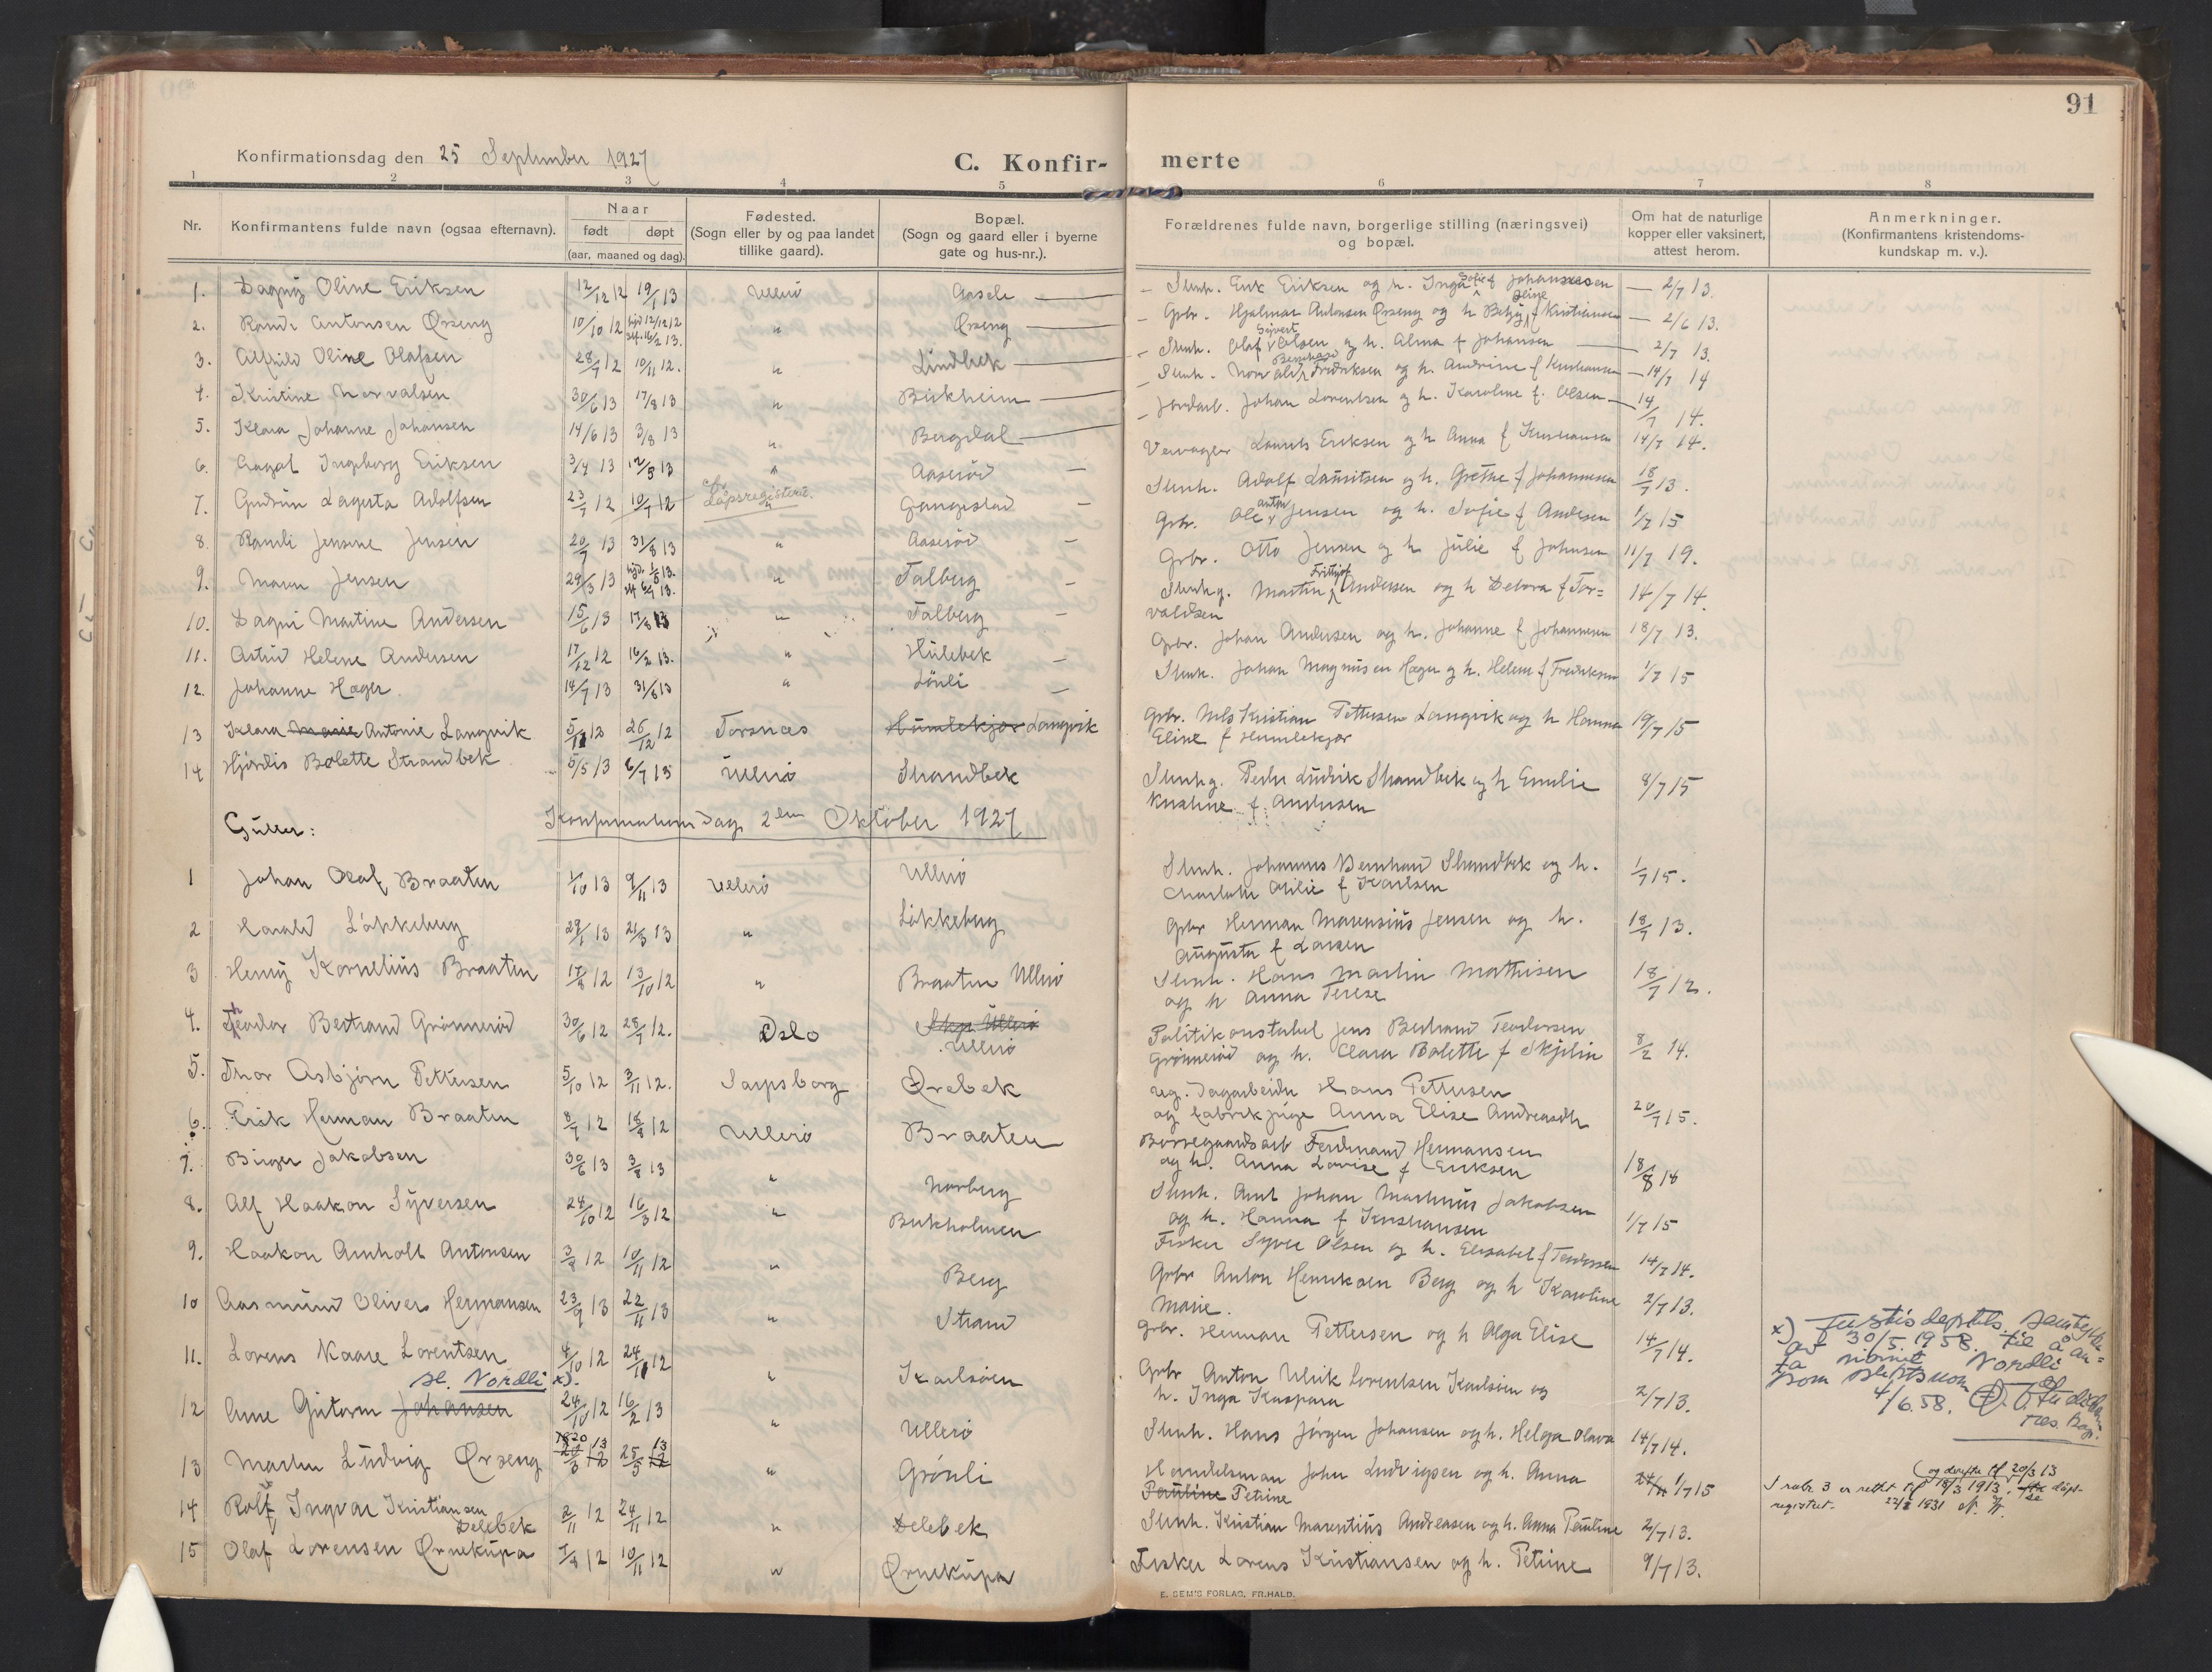 91
Konfirmationsdag den 25 September 1927
C. Konfir-
merte
1 2 3 4 5 6 7 8
Nr.
Konfirmantens fulde navn (ogsaa efternavn).
Naar
født døpt
(aar, maaned og dag).
Fødested.
(Sogn eller by og paa landet
tillike gaard).
Bopæl.
(Sogn og gaard eller i byerne
gate og hus-nr.).
Forældrenes fulde navn, borgerlige stilling (næringsvei)
og bopæl.
Om hat de naturlige
kopper eller vaksinert,
attest herom.
Anmerkninger.
(Konfirmantens kristendoms-
kundskap m. v.).
1. Dagny Oline Eriksen 12/12 12 19/1 13 Ullerö Aasele — Stenh. Erik Eriksen og h. Inga Sofie f Johannesen — 2/7 13.
2. Randi Antonsen Ørseng 10/10 12 hjd 12/12 12 " Ørseng — Gbr. Hjalmar Antonsen Ørseng og h Betzy Oline f Kristiansen — 2/6 13.
stf. 16/2 13.
3. Alfhild Oline Olafsen 28/7 12 10/11 12. " Lindbek — Stenh. Olaf Syvert Olsen og h. Alma f Johansen — 2/7 13.
4. Kristine Norvalsen 30/6 13 17/8 13 " Birkheim — Stenh. Norvald Bernhard Fredriksen og h. Andrine f Kristiansen — 14/7 14
5. Klara Johanne Johansen 14/6 13 3/8 13 " Bergdal — Jordarb. Johan Lorentsen og h. Karoline f. Olsen — 14/7 14.
6. Aagot Ingeborg Eriksen 3/4 13 12/5 13 " Aaseröd — Veivogter Laurits Eriksen og h Anna f Kristiansen 14/7 14.
7. Gudrun Lagerta Adolfsen 23/7 12 10/7 12 cfr Dåpsregisteret. " Gangestad — Stenh. Adolf Lauritsen og h. Grethe f Johannesen 18/7 13.
8. Randi Jensine Jensen 20/7 13 31/8 13 " Aaseröd — Gbr. Ole Anton Jensen og h. Sofie f Andersen 1/7 15
9. Maren Jensen 29/3 13 hjd. 1/5 13. " Talberg — Gbr. Otto Jensen og h Julie f Johnsen 11/7 19.
10. Dagni Martine Andersen 15/6 13 17/8 13 " Talberg — Stenhg. Martin Frithjof Andersen og h Debora f Tor=
valdsen 14/7 14.
11. Astrid Helene Andersen 17/12 12 16/2 13. " Hulebek — Gbr. Johan Andersen og h. Johanne f Johannesen 18/7 13.
12. Johanne Hager 14/7 13 31/8 13 " Lönli — Stenh. Johan Magnusen Hager og h. Helene f Fredriksen 1/7 15
13 Klara Marie Antonie Langvik 5/11 12 26/12 12 Torsnæs Humlekjær Langvik Gbr. Nils Kristian Pettersen Langvik og h Hanna
Eline f Humlekjær 19/7 15
14 Hjördis Bolette Strandbek 5/5 13 6/7 13 Ullerö Strandbek Stenhg. Peder Ludvik Strandbek og h Emilie
Kristine f. Andersen 8/7 15
Gutter: Konfirmationsdag 2den Oktober 1927
1 Johan Olaf Braaten 1/10 13 9/11 13 Ullerö Ullerö Stenh. Johannes Bernhard Strandbek og h.
Charlotte Otilie f Karlsen 1/7 15.
2 Harald Lökkeberg 29/1 13 21/3 13 " Lökkeberg Gbr Herman Marensius Jensen og h.
Augusta f Larsen 18/7 13.
3 Henry Kornelius Braaten 17/8 12 13/10 12 " Braaten Ullerö Stenh. Hans Martin Mathisen
og h Anna Terese 18/7 12.
4. Theodor Bertrand Grönneröd 30/6 12 28/7 12. Oslo Skjr. Ullerö Ullerö Politikonstabel Jens Bertrand Teodorsen
Grönneröd og h. Clara Bolette f Skjelin 8/2 14.
5. Thor Asbjørn Pettersen 5/10 12 3/11 12. Sarpsborg Ørebek ug. Dagarbeider Hans Pettersen
og fabrikpige Anna Elise Andreasdtr 20/7 15.
6. Erik Herman Braaten 8/7 12 18/8 12 Ullerö Braaten Borregaardsarb Ferdinand Hermansen
og h. Anna Lovise f Eriksen 18/8 14
7. Birger Jakobsen 30/6 13 3/8 13 " Norberg Stenh. Arnt Johan Martinius Jakobsen
og h. Hanna f Kristiansen 1/7 15
8. Alf Haakon Syversen 24/10 12 16/3 12 " Burkholmen Fisker Syver Olsen og h. Elisabet f Teodorsen 14/7 14.
9. Haakon Arnholt Antonsen 3/8 12 10/11 12 " Berg Gbr Anton Henriksen Berg og h Karoline
Marie. 2/7 13.
10 Aasmund Olivers Hermansen 23/9 13 22/11 13 " Strand Gbr. Herman Pettersen og h Olga Elise 14/7 14.
11. Lorens Kaare Lorentsen 4/10 12 24/11 12 " Karlsöen Gbr Anton Ulrik Lorentsen Karlsöen og
h. Inga Kaspara 2/7 13.
sl. Nordli x).
12 Arne Gutorm Johansen 24/10 12 16/2 13 " Ullerö Stenh. Hans Jörgen Johansen og h. Helga Olava 14/7 14.
x) Justisdeptets samtykke
av 30/5.1958 til å an=
ta navnet Nordli
som slektsnavn
4/6.58.
res. kap.
13 Martin Ludvig Ørseng 25/5 13 " Grönli Handelsman John Ludvigsen og h. Anna
Pauline Petrine 1/7 15
(og derefter til 20/3 13
I rubr. 3 er rettet til 18/3 1913. døps-
registret. 22/2 1931
14 Rolf Ingvar Kristiansen
Delebek 2/11 12 24/11 12 " Delebek Stenh. Kristian Marentius Andreasen og h. Anna Pauline 2/7 13.
15 Olaf Lorensen Ørnekupa 7/8 12 10/11 12 " Ørnekupa Fisker Lorens Kristiansen og h. Petrine 9/7 13.
E. SEM'S FORLAG, FR.HALD.